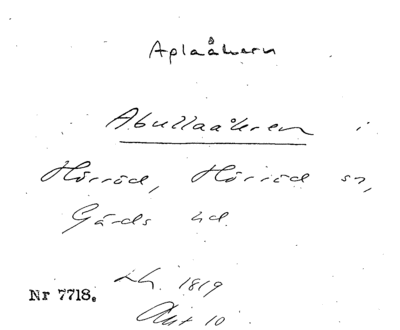 Aplaåkern
Abullaåkern i
Hörröd, Hörröd sn,
Gärds hd.
Lh. 1819
Nr 7718.
Akt 10